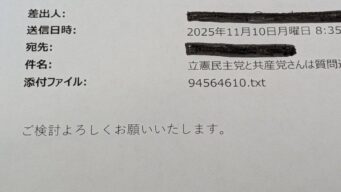 差出人:
送信日時: 2025年11月10日月曜日 8:35
宛先:
件名: 立憲民主党と共産党さんは質問
添付ファイル: 94564610.txt
ご検討よろしくお願いいたします。